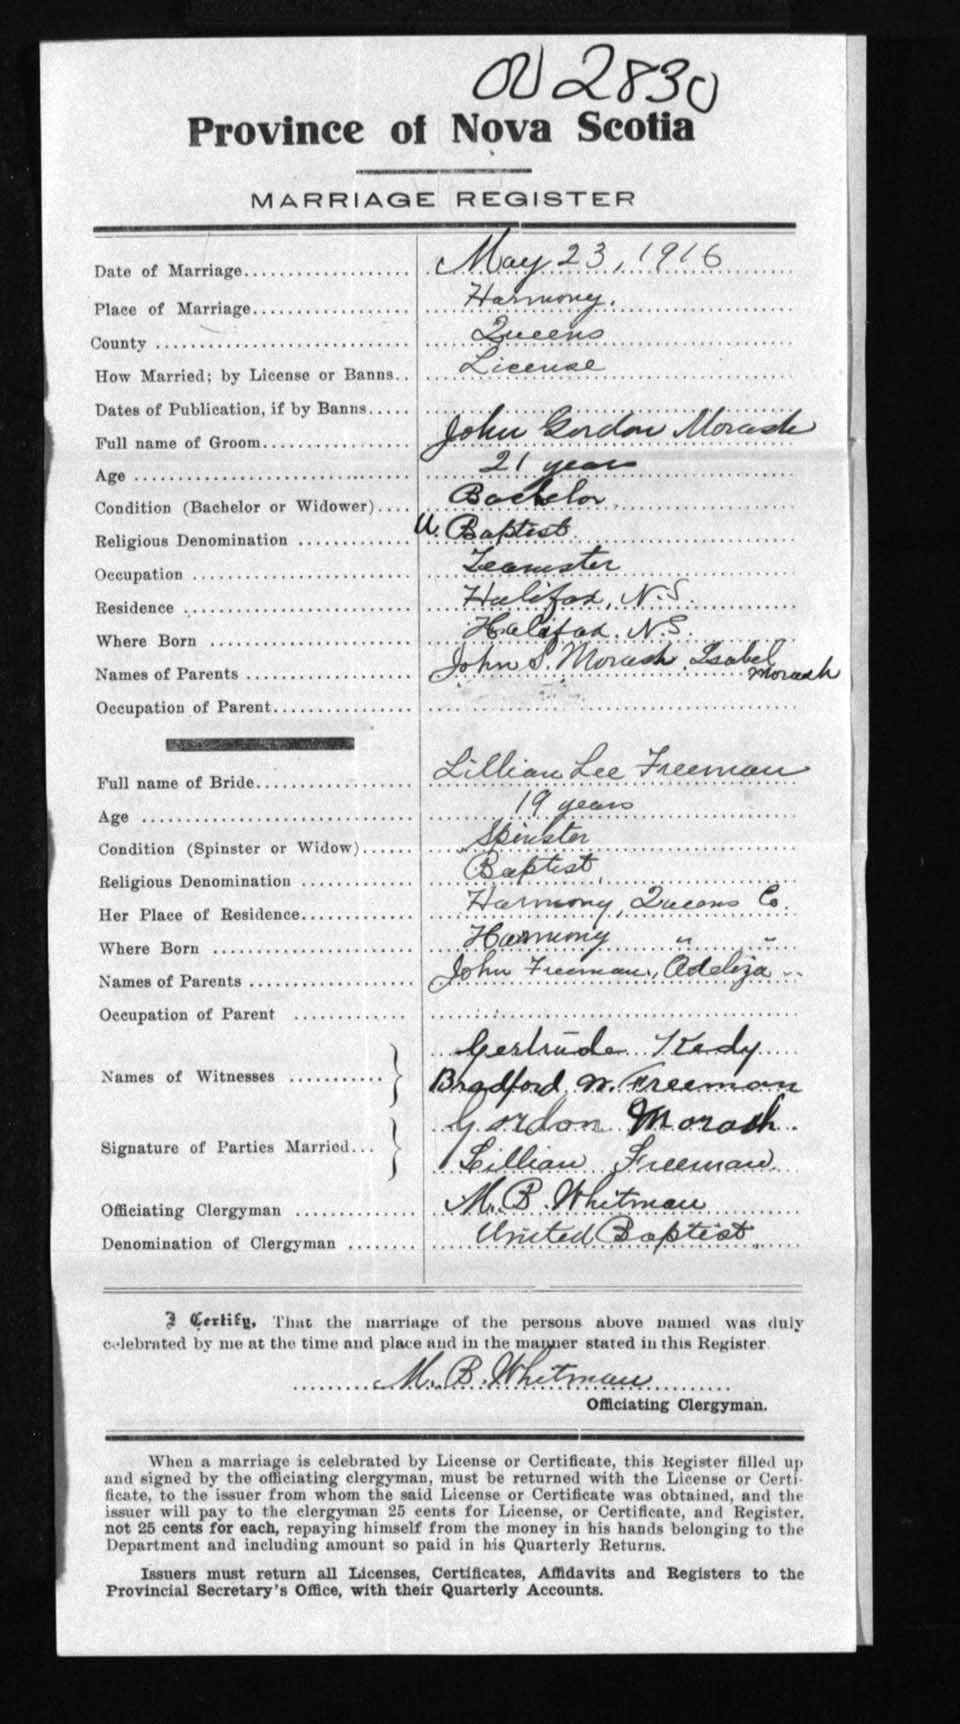 2830
Province of Nova Scotia
MARRIAGE REGISTER
Date of Marriage................... May 23, 1916
Place of Marriage.................. Harmony.
County ............................. Queens
How Married; by License or Banns.. License
Dates of Publication, if by Banns.....
Full name of Groom................. John Gordon Morash
Age ................................ 21 years
Condition (Bachelor or Widower).... Bachelor
Religious Denomination ............. U. Baptist
Occupation ......................... Teamster
Residence .......................... Halifax, N.S.
Where Born ......................... Halifax. N.S.
Names of Parents ................... John S. Morash. Isabel Morash
Occupation of Parent................
Full name of Bride.................. Lillian Lee Freeman
Age ................................ 19 years
Condition (Spinster or Widow)...... Spinster
Religious Denomination ............. Baptist
Her Place of Residence............. Harmony, Queens Co.
Where Born ......................... Harmony " "
Names of Parents ................... John Freeman, Adeliza "
Occupation of Parent ..............
Names of Witnesses ........... } Gertrude Kedy
Bradford W. Freeman
Signature of Parties Married... } Gordon Morash.
Lillian Freeman
Officiating Clergyman .............. M. B. Whitman
Denomination of Clergyman ........ United Baptist
I Certify, That the marriage of the persons above named was duly
celebrated by me at the time and place and in the manner stated in this Register
M. B. Whitman
Officiating Clergyman.
When a marriage is celebrated by License or Certificate, this Register filled up
and signed by the officiating clergyman, must be returned with the License or Certi-
ficate, to the issuer from whom the said License or Certificate was obtained, and the
issuer will pay to the clergyman 25 cents for License, or Certificate, and Register,
not 25 cents for each, repaying himself from the money in his hands belonging to the
Department and including amount so paid in his Quarterly Returns.
Issuers must return all Licenses, Certificates, Affidavits and Registers to the
Provincial Secretary's Office, with their Quarterly Accounts.